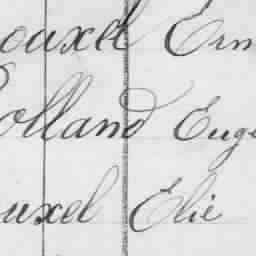 ouxel Ern
olland Euge
uxel Elie